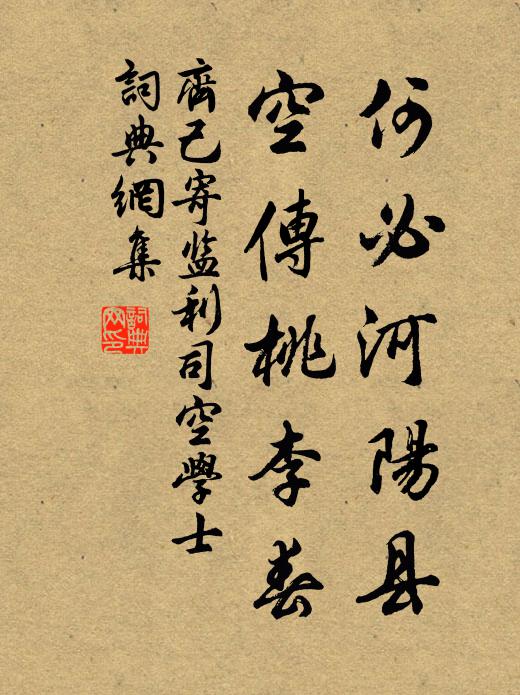 何必河陽县
空傳桃李春
齊己寄监利司空學士
詞典網集
詞典网印